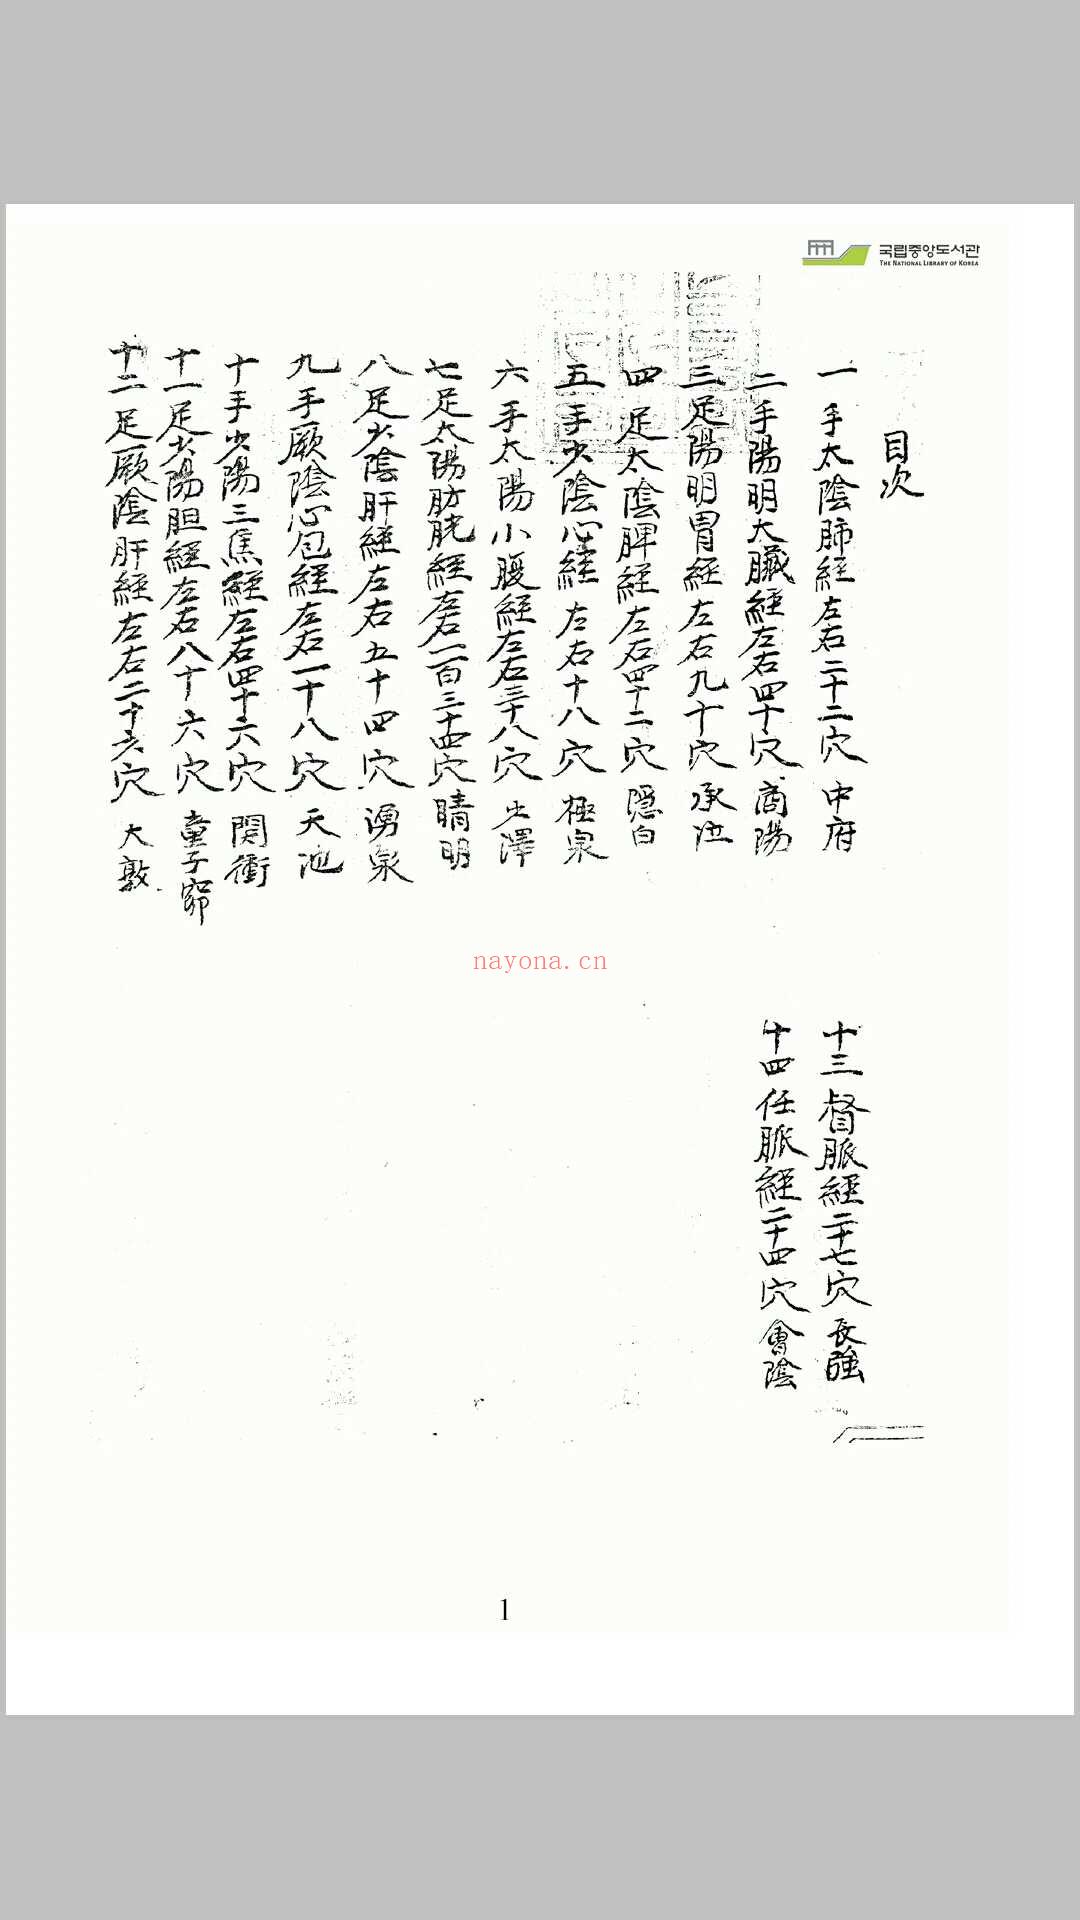 국립중앙도서관
THE NATIONAL LIBRARY OF KOREA
目次
一 手太陰肺経左右二十二穴 中府
二手陽明大臟経左右四十穴 商陽
三足陽明胃経左右九十穴 承泣
四 足太陰脾経左右四十二穴 隠白
五 手少陰心経左右十八穴 極泉
六 手太陽小腹経左右三十八穴 少澤
七足太陽肪胱経左右一百三十四穴 睛明
八足少陰肝経左右五十四穴 湧泉
九手厥陰心包経左右一十八穴 天池
十手少陽三焦経左右四十六穴 関衝
十一足少陽胆経左右八十六穴 童子窌
十二足厥陰肝経左右二十六穴 大敦
十三 督脈経二十七穴 長強
十四 任脈経二十四穴 會陰
nayona.cn
1